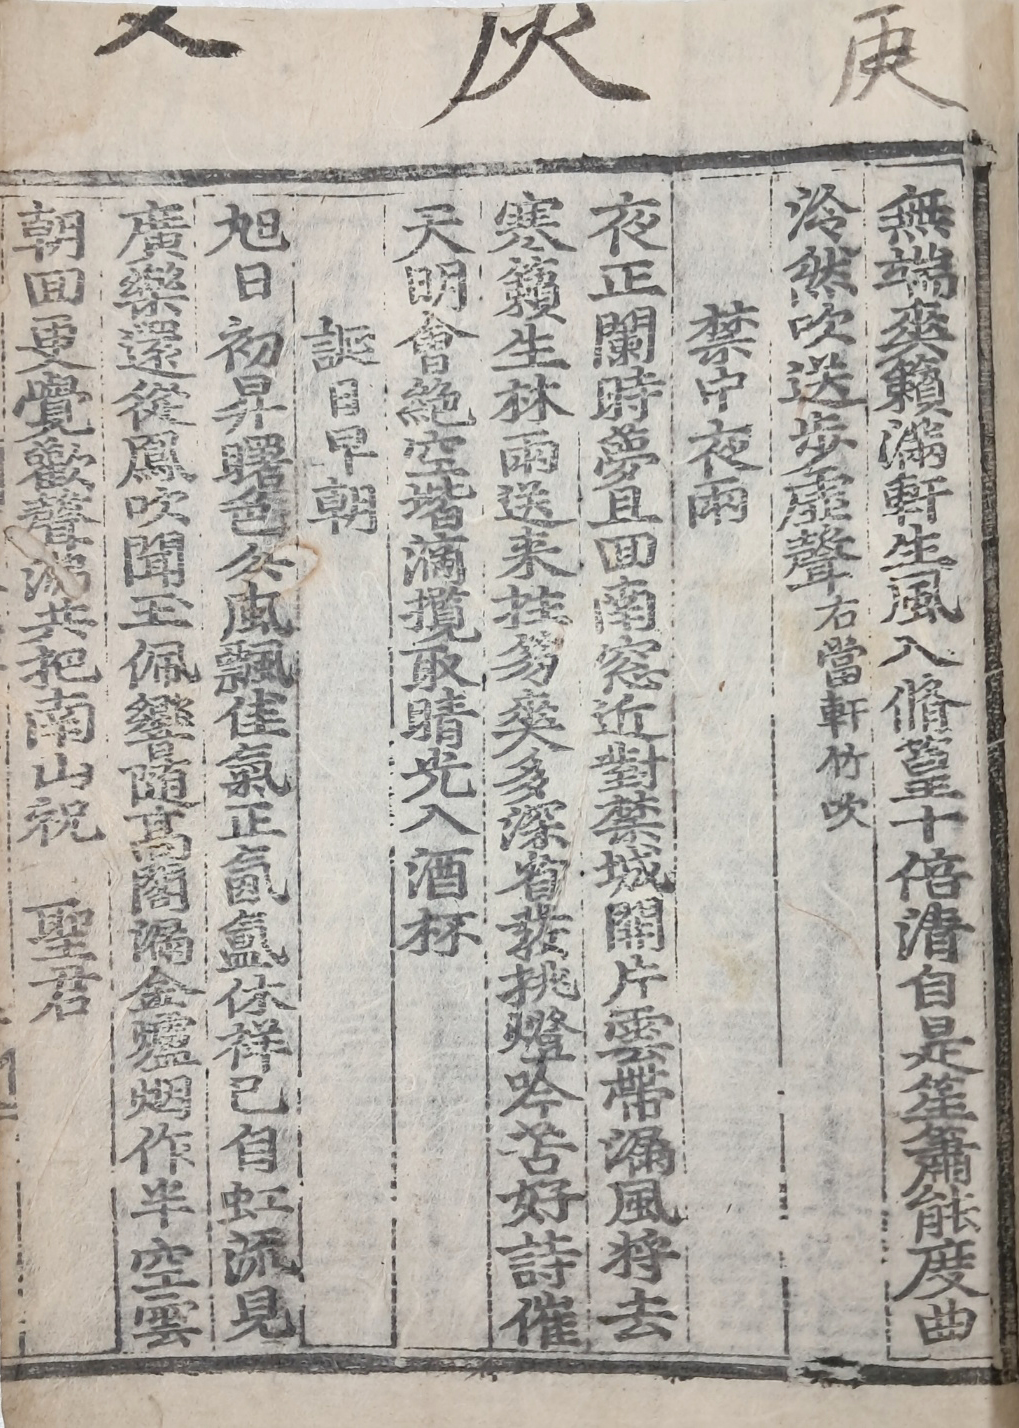 無端爽籟滿軒生風入脩篁十倍淸自是笙簫能度曲
泠然吹送步虛聲右當軒竹吹
禁中夜雨
夜正闌時夢且回南窓近對禁城開片雲帶漏風將去
寒籟生林雨送来挂笏爽多深省發挑燈吟苦好詩催
天明會絶空堦滴攬取晴光入酒杯
誕日早朝
旭日初昇曙色分風飄佳氣正氤氳休祥已自虹流見
廣樂還從鳳吹聞玉佩響随高閣漏金爐烟作半空雲
朝回更覺歡聲沸共把南山祝 聖君